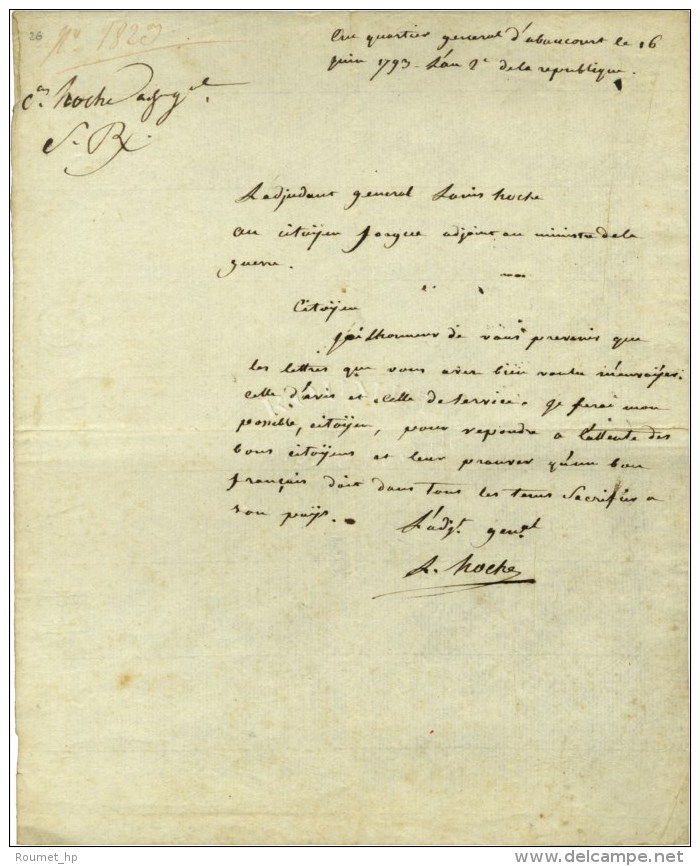 26
N° 1823
Cen hoche adj. gel.
S. R.
Au quartier general d'abancourt le 16
juin 1793 - L'an 2e de la republique.
L'adjudant general Louis hoche
au citoyen adjoint au ministre de la
guerre.
Citoÿen
j'ai L'honneur de vous prevenir que
les lettres que vous avez bien voulu m'envoÿer.
celle d'avis et celle de service. je ferai mon
possible, citoÿen, pour repondre a l'attente des
bons citoÿens et leur prouver qu'un bon
français doit dans tous les tems Sacrifier a
son paÿs.
L'adjt. genal
L. hoche
Roumet_hp
delcampe.net